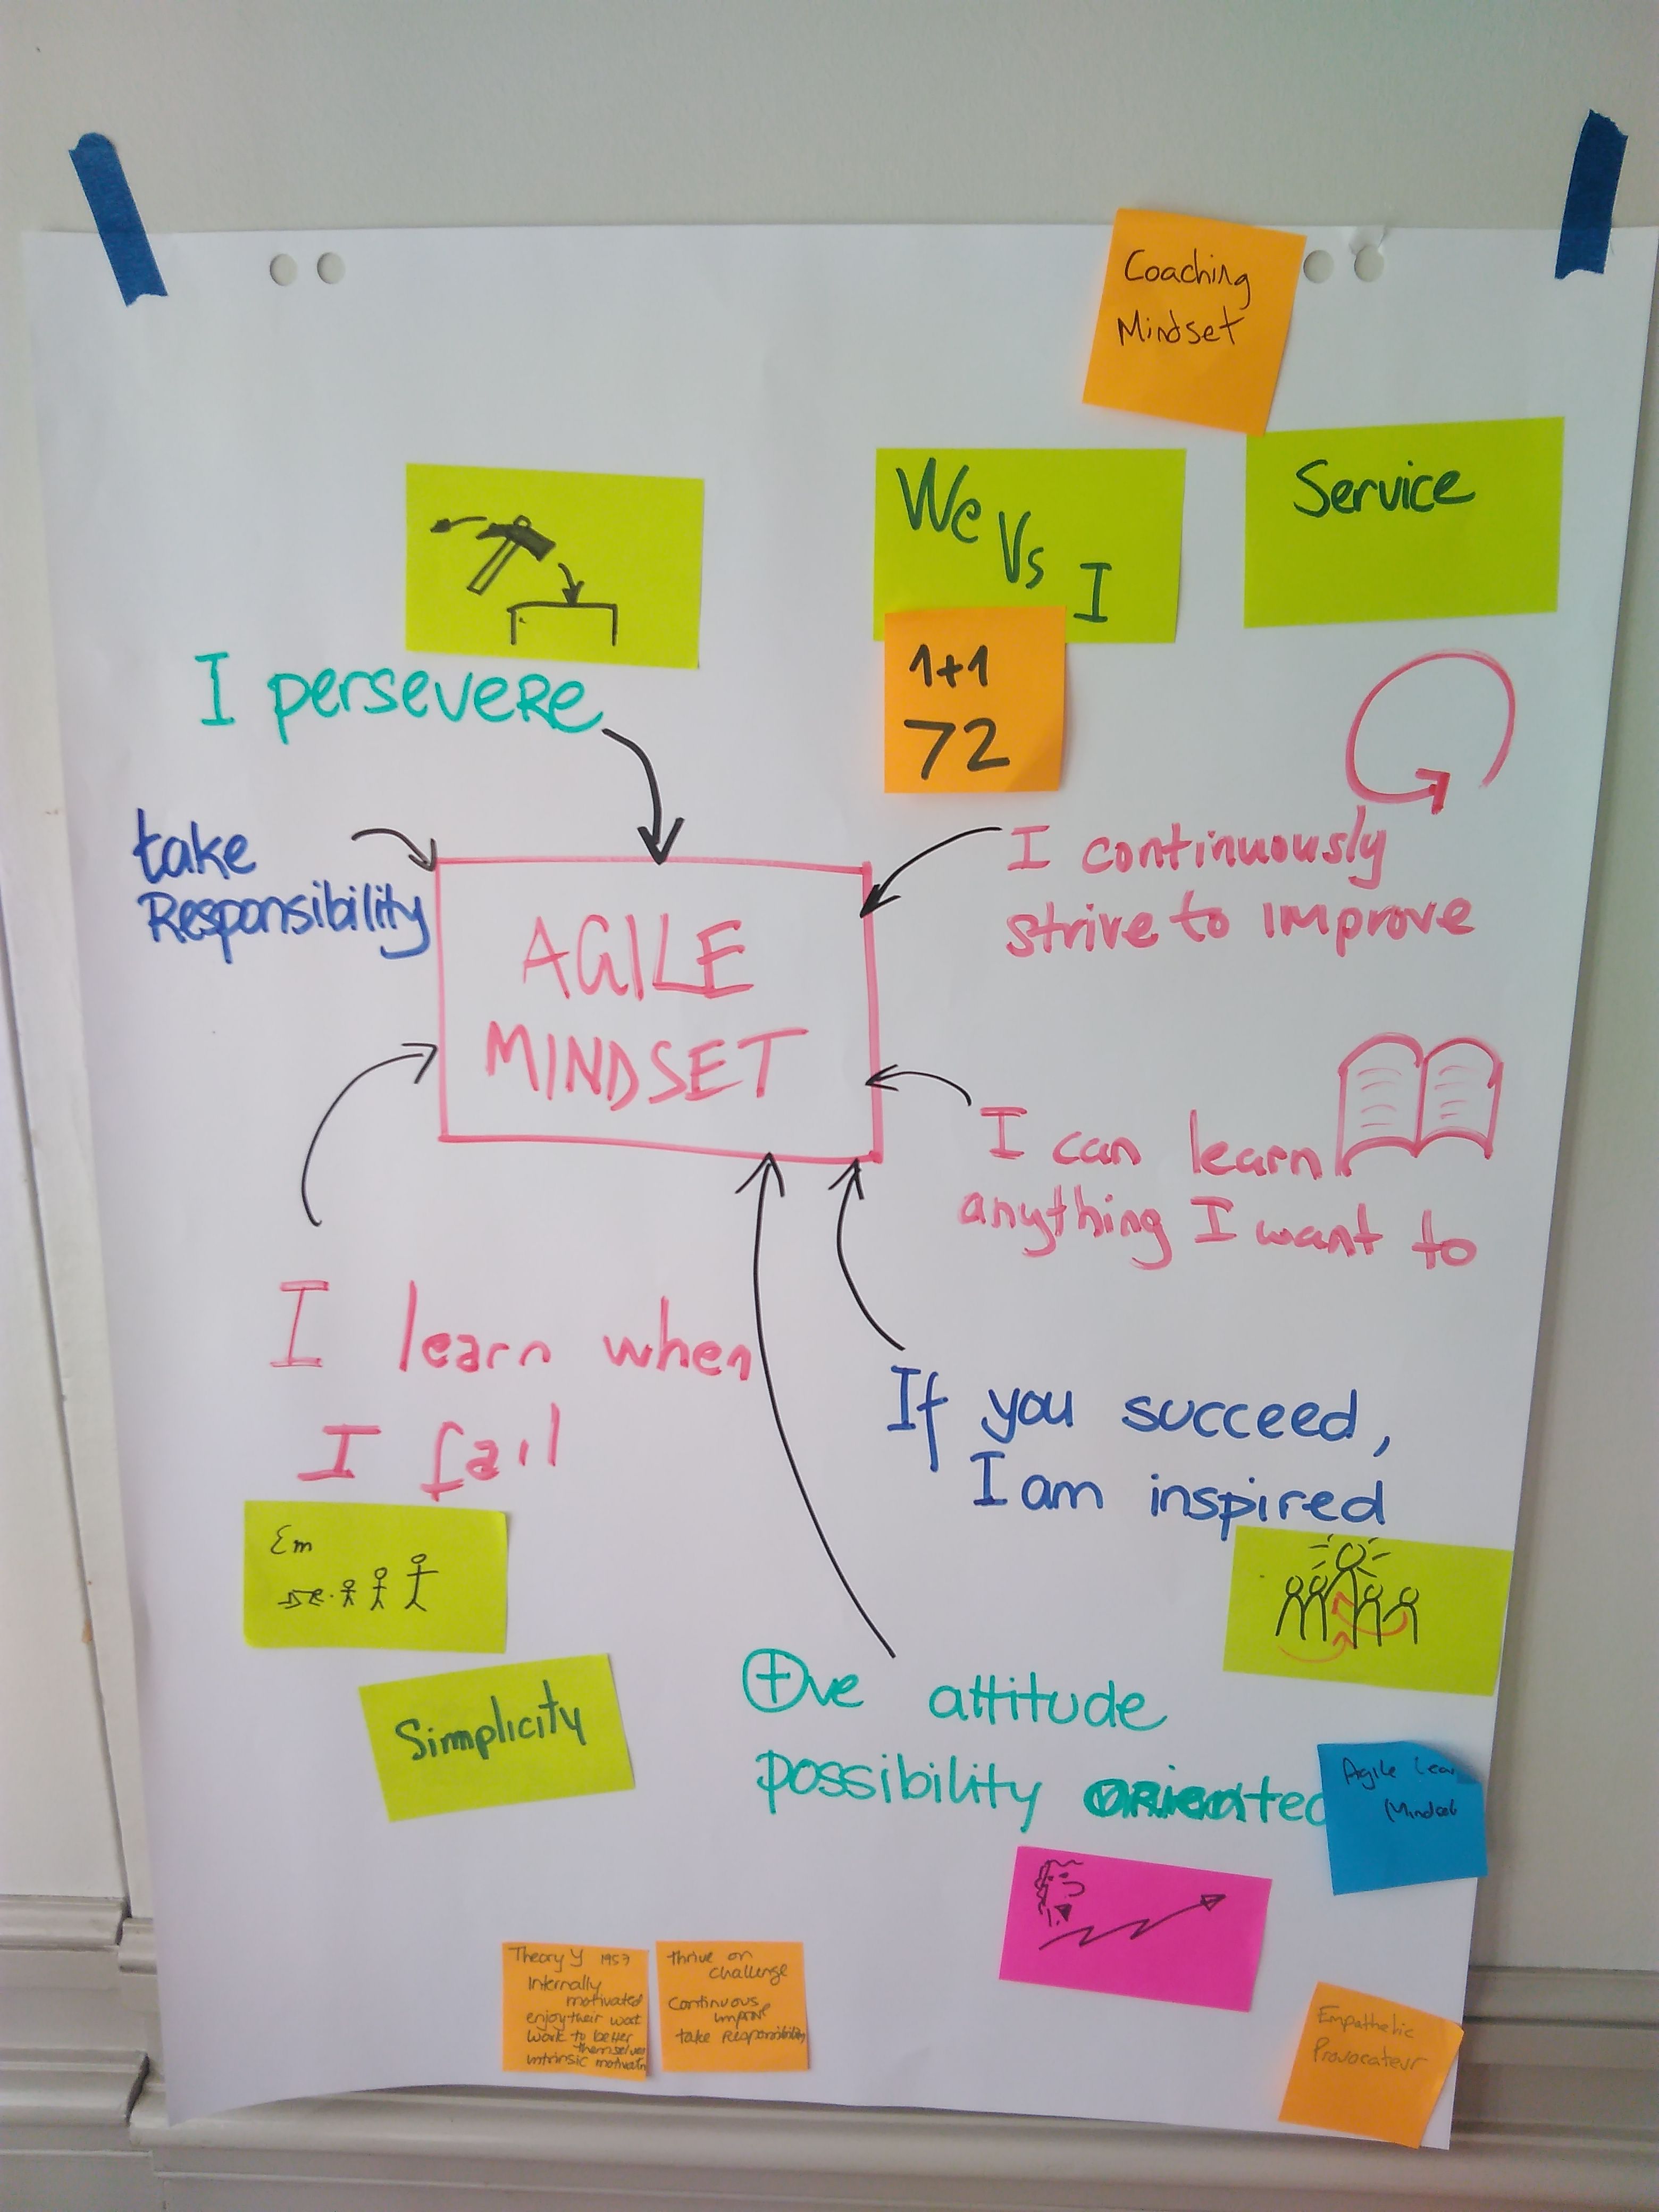 Coaching
Mindset
We
Vs
I
Service
1+1
72
I persevere
take
Responsibility
AGILE
MINDSET
I continuously
strive to improve
I can learn
anything I want to
I learn when
I fail
If you succeed,
I am inspired
Simplicity
+ve attitude
possibility oriented
Agile Lea
Theory Y 195
Internally
motivated
enjoy their work
work to better
themselves
intrinsic
thrive on
challenge
Continuous
improve
take Responsibility
Empathetic
Provocateur